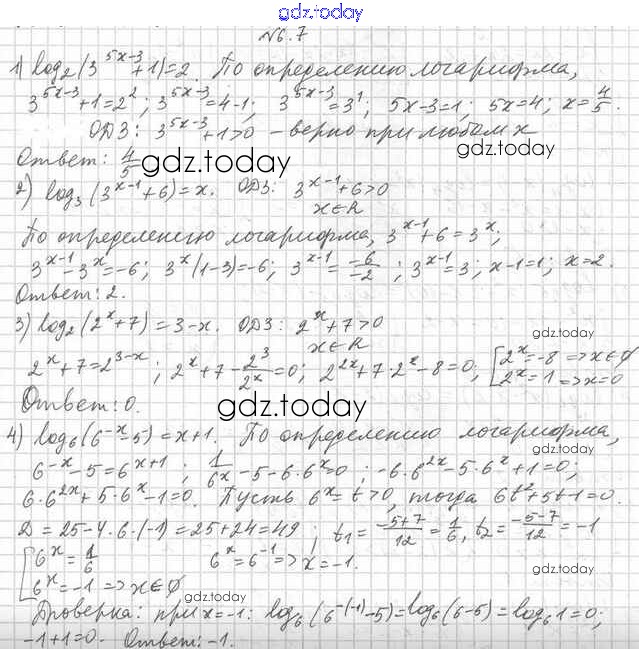 gdz.today
№6.7
1) log₂(3^(5x-3)+1)=2. По определению логарифма,
3^(5x-3)+1=2²; 3^(5x-3)=4-1; 3^(5x-3)=3¹; 5x-3=1; 5x=4; x=4/5.
ОДЗ: 3^(5x-3)+1>0 - верно при любом x
gdz.today
Ответ: 4/5
gdz.today
2) log₃(3^(x-1)+6)=x. ОДЗ: 3^(x-1)+6>0
x∈R
По определению логарифма, 3^(x-1)+6=3^x;
3^(x-1)-3^x=-6; 3^x(1-3)=-6; 3^(x-1)=-6/-2; 3^(x-1)=3; x-1=1; x=2.
Ответ: 2.
3) log₂(2^x+7)=3-x. ОДЗ: 2^x+7>0
x∈R
gdz.today
2^x+7=2^(3-x); 2^x+7-2³/2^x=0; 2^(2x)+7·2^x-8=0; [2^x=-8=>x∈∅
2^x=1=>x=0
Ответ: 0.
gdz.today
gdz.today
4) log₆(6^(-x)-5)=x+1. По определению логарифма,
6^(-x)-5=6^(x+1); 1/6^x-5-6·6^x=0; -6·6^(2x)-5·6^x+1=0;
6·6^(2x)+5·6^x-1=0. Пусть 6^x=t>0, тогда 6t²+5t-1=0.
D=25-4·6·(-1)=25+24=49; t₁=(-5+7)/12=1/6, t₂=(-5-7)/12=-1
[6^x=1/6 6^x=6^(-1)=>x=-1.
gdz.today
6^x=-1=>x∈∅
gdz.today
Проверка: при x=-1: log₆(6^(-(-1))-5)=log₆(6-5)=log₆1=0;
-1+1=0. Ответ: -1.
gdz.today